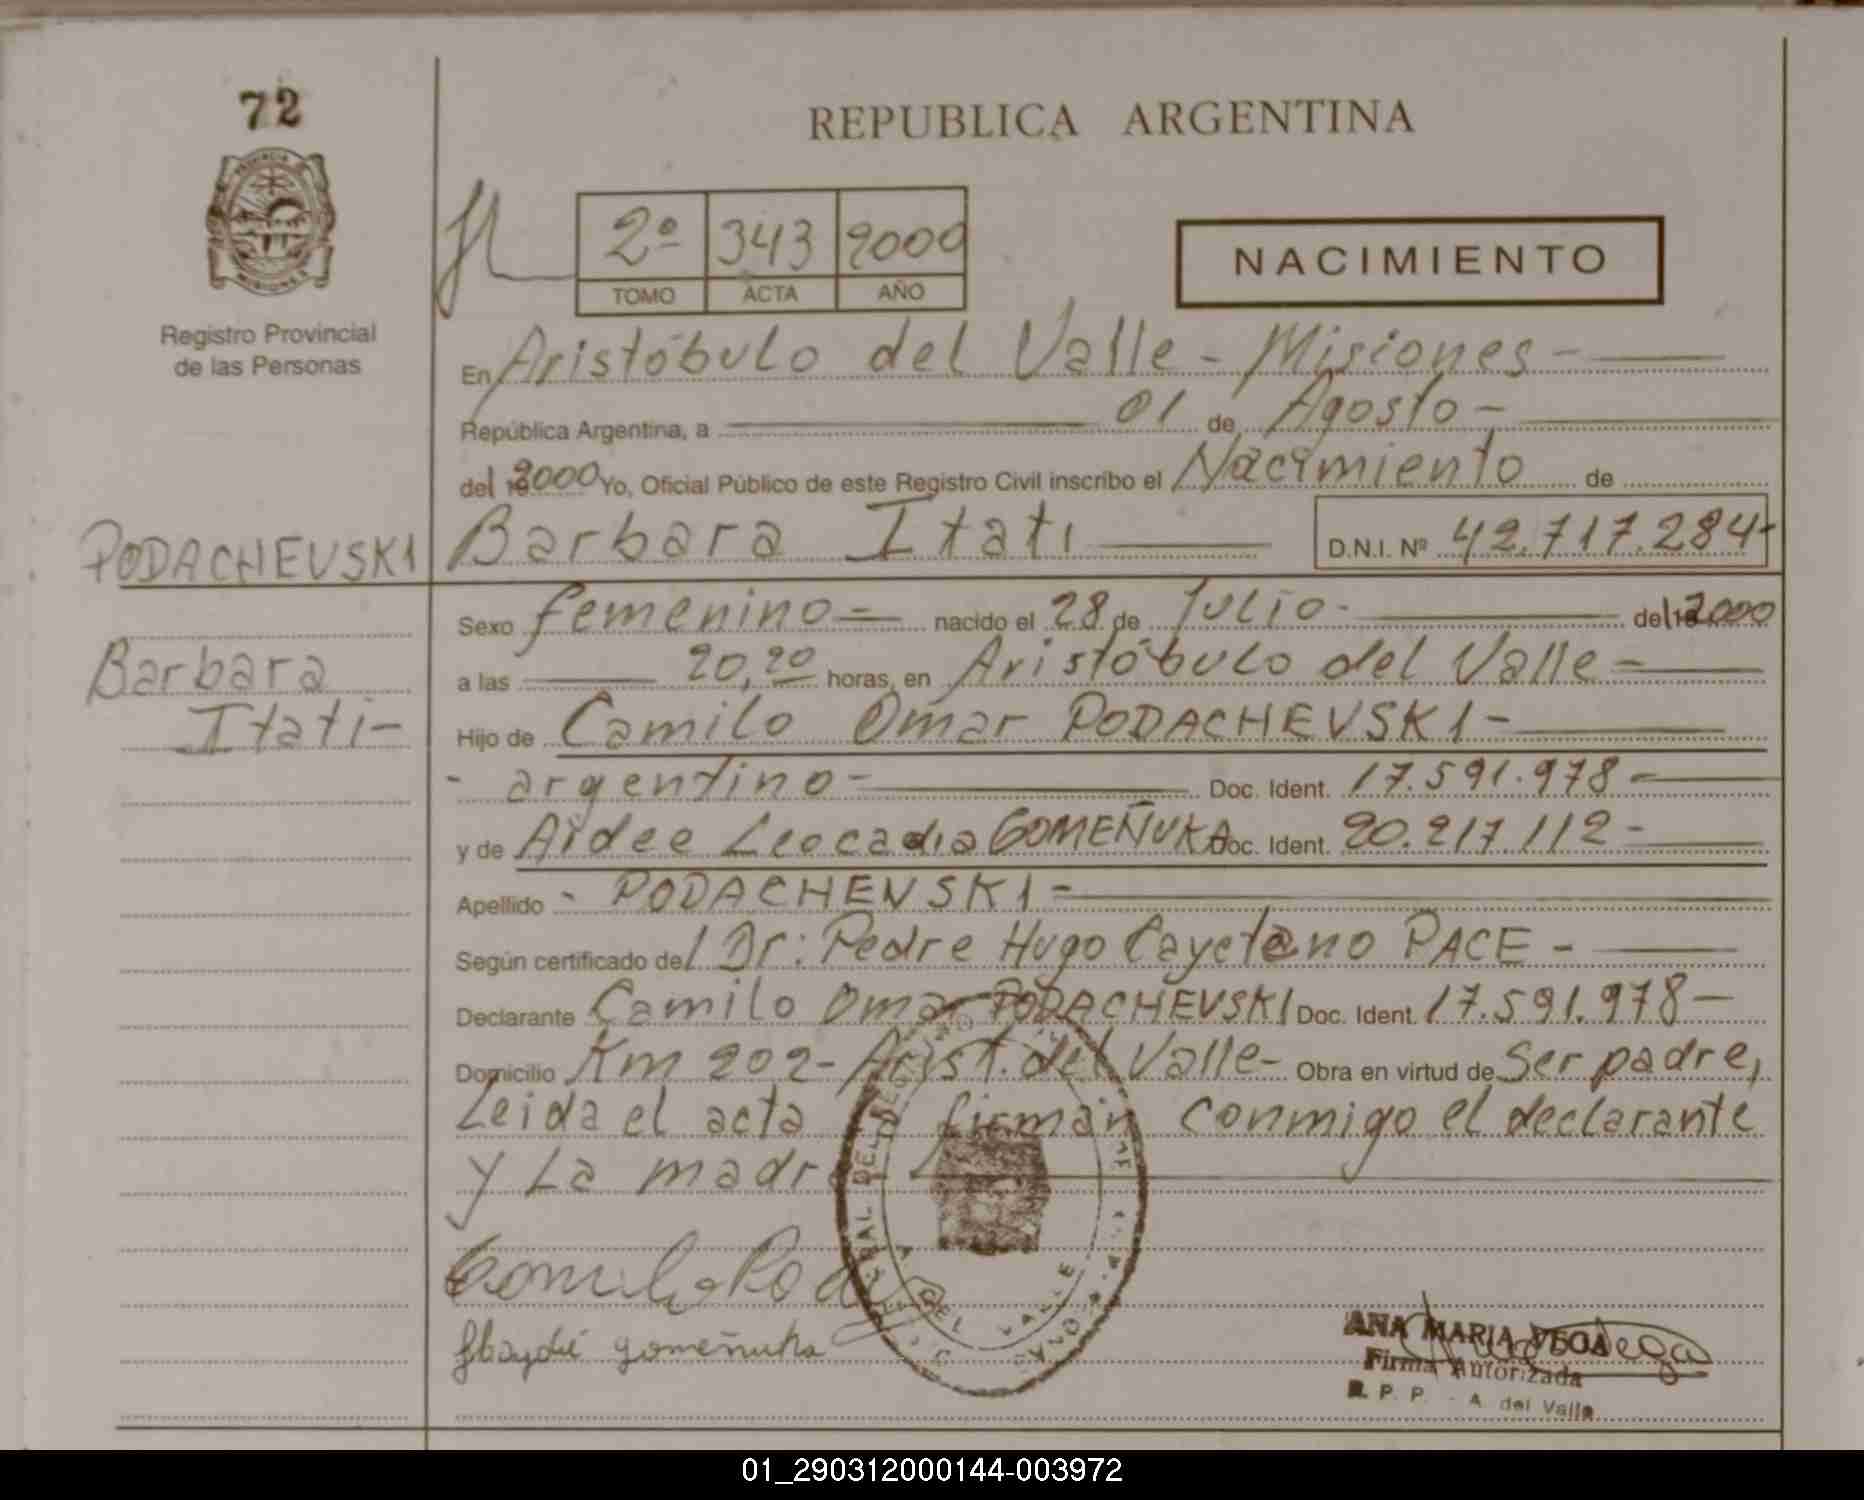 72
REPUBLICA ARGENTINA
PROVINCIA
MISIONES
2º 343 2000
TOMO ACTA AÑO
NACIMIENTO
Registro Provincial
de las Personas
En Aristóbulo del Valle - Misiones -
República Argentina, a 01 de Agosto -
del 2000 Yo, Oficial Público de este Registro Civil inscribo el Nacimiento de
PODACHEVSKI Barbara Itati D.N.I. Nº 42.717.284-
Sexo femenino - nacido el 28 de Julio - del 2000
Barbara a las 20,20 horas, en Aristóbulo del Valle -
Itati - Hijo de Camilo Omar PODACHEVSKI -
- argentino - Doc. Ident. 17.591.978 -
y de Aidee Leocadia GOMEÑUKA Doc. Ident. 20.217.112 -
Apellido - PODACHEVSKI -
Según certificado del Dr: Pedro Hugo Cayetano PACE -
Declarante Camilo Omar PODACHEVSKI Doc. Ident. 17.591.978 -
Domicilio Km 202 - Arist. del Valle - Obra en virtud de Ser padre,
Leida el acta la firman conmigo el declarante
y La madre
Camilo
gomeñuka
DEL VALLE
ANA MARIA VEGA
Firma Autorizada
R. P. P. - A. del Valle
01_290312000144-003972